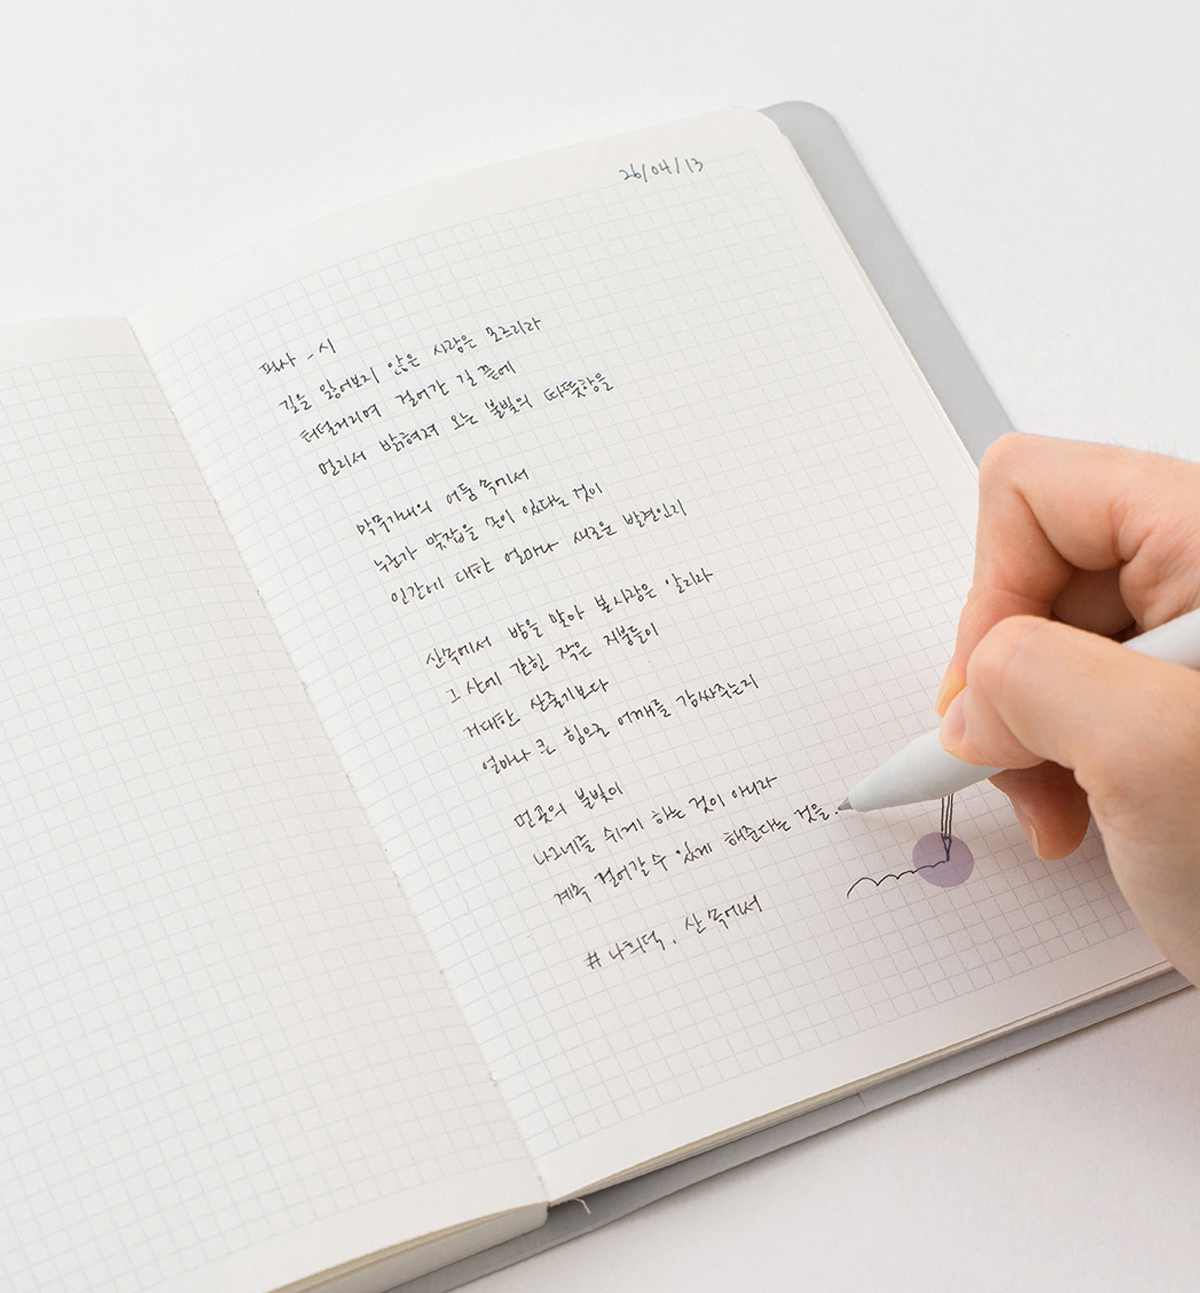 26/04/13
필사 - 시
길을 잃어보지 않은 사람은 모르리라
터덜거리며 걸어간 길 끝에
멀리서 밝혀져 오는 불빛의 따뜻함을
막무가내의 어둠 속에서
누군가 맞잡을 손이 있다는 것이
인간에 대한 얼마나 새로운 발견인지
산속에서 밤을 맞아 본 사람은 알리라
그 산에 갇힌 작은 지붕들이
거대한 산줄기보다
얼마나 큰 힘으로 어깨를 감싸주는지
먼 곳의 불빛이
나그네를 쉬게 하는 것이 아니라
계속 걸어갈 수 있게 해준다는 것을.
# 나희덕. 산 속에서